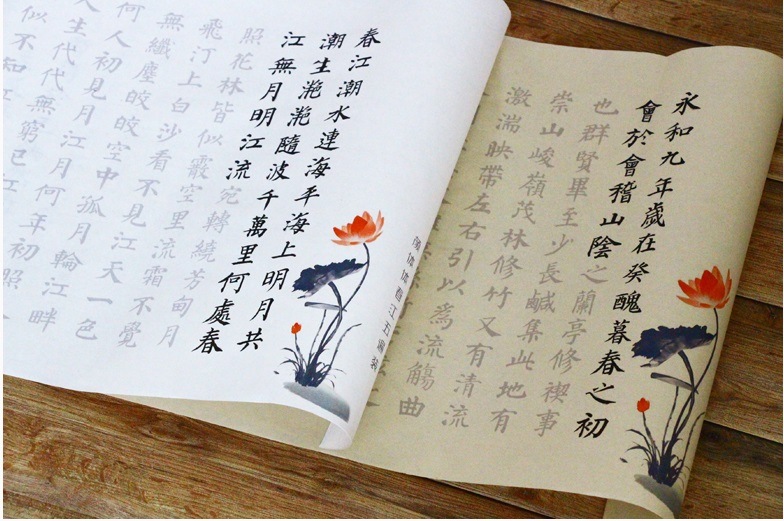 永和九年歲在癸醜暮春之初
會於會稽山陰之蘭亭修禊事
也群賢畢至少長鹹集此地有
崇山峻嶺茂林修竹又有清流
激湍映帶左右引以為流觴曲
春江潮水連海平海上明月共
潮生滟滟隨波千萬里何處春
江無月明江流宛轉繞芳甸月
照花林皆似霰空里流霜不覺
飛汀上白沙看不見江天一色
無纖塵皎皎空中孤月輪江畔
何人初見月江月何年初照
人生代代無窮已江
似不知江